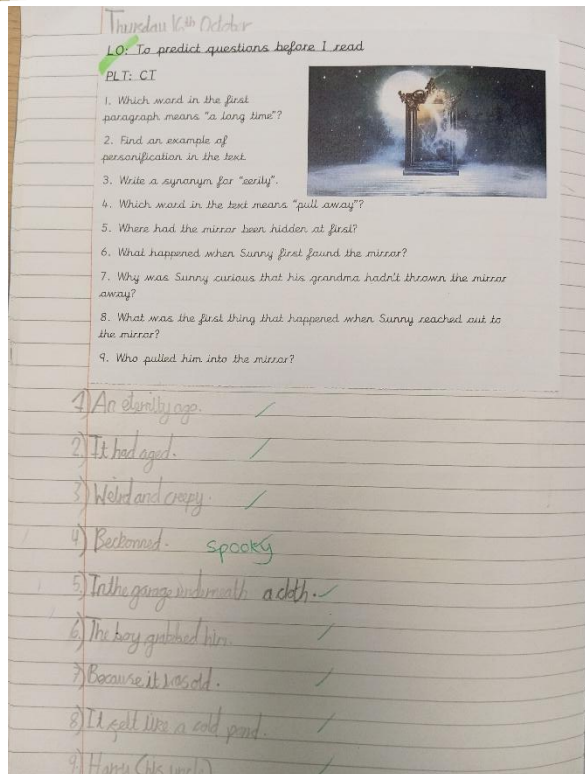 Thursday 16th October
LO: To predict questions before I read
PLT: CT
1. Which word in the first
paragraph means "a long time"?
2. Find an example of
personification in the text.
3. Write a synonym for "eerily".
4. Which word in the text means "pull away"?
5. Where had the mirror been hidden at first?
6. What happened when Sunny first found the mirror?
7. Why was Sunny curious that his grandma hadn't thrown the mirror
away?
8. What was the first thing that happened when Sunny reached out to
the mirror?
9. Who pulled him into the mirror?
1) An eternity ago.
2) It had aged.
3) Weird and creepy.
4) Beckonned. Spooky
5) In the garage underneath a cloth.
6) The boy grabbed him.
7) Because it was old.
8) It felt like a cold pond.
9) Harry (his uncle)